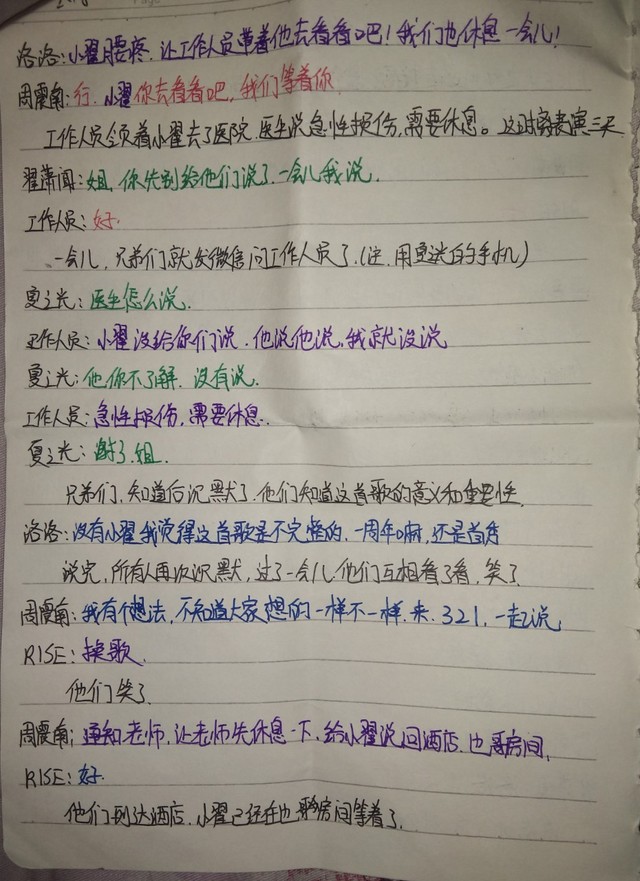 洛洛:小翟腰疼,让工作人员带着他去看看吧!我们也休息一会儿!
周震南:行.小翟你去看看吧,我们等着你
工作人员领着小翟去了医院.医生说急性损伤,需要休息。这时离表演三天
翟潇闻:姐,你先别给他们说了.一会儿我说.
工作人员:好.
一会儿,兄弟们就发微信问工作人员了.(注.用夏之光的手机)
夏之光:医生怎么说.
工作人员:小翟没给你们说.他说他说,我就没说
夏之光:他你不了解.没有说.
工作人员:急性损伤,需要休息.
夏之光:谢了.姐.
兄弟们.知道后沉默了.他们知道这首歌的意义和重要性.
洛洛:没有小翟我觉得这首歌是不完整的,一周年嘛,还是首秀
说完,所有人再次沉默,过了一会儿.他们互相看了看,笑了.
周震南:我有个想法,不知道大家想的一样不一样.来.321,一起说
RISE:换歌.
他们笑了.
周震南:通知老师,让老师先休息一下.给小翟说回酒店.也哥房间.
RISE:好.
他们到达酒店.小翟已经在也哥房间等着了.